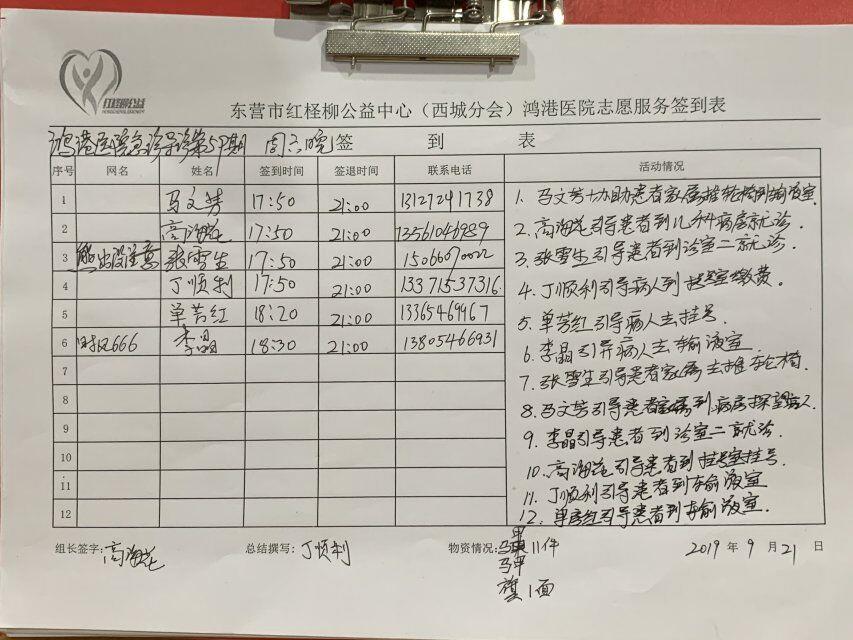 红柳公益
东营市红柽柳公益中心（西城分会）鸿港医院志愿服务签到表
鸿港医院急诊导诊第59期 周六晚 签 到 表
序号 网名 姓名 签到时间 签退时间 联系电话 活动情况
1 马文芳 17:50 21:00 13127241738
2 高海花 17:50 21:00 13561046989
3 熊出没注意 张雪生 17:50 21:00 15066070022
4 丁顺利 17:50 21:00 13371537316
5 单芳红 18:20 21:00 13365469967
6 财风666 李晶 18:30 21:00 13805466931
7
8
9
10
11
12
1. 马文芳协助患者家属推轮椅到输液室
2. 高海花引导患者到儿外科病房就诊.
3. 张雪生引导患者到诊室二就诊.
4. 丁顺利引导病人到挂号室缴费.
5. 单芳红引导病人去挂号
6. 李晶引导病人去输液室
7. 张雪生引导患者家属去推轮椅
8. 马文芳引导患者家属到病房探望病人
9. 李晶引导患者到诊室二就诊
10. 高海花引导患者到挂号室挂号.
11. 丁顺利引导患者到输液室
12. 单芳红引导患者到输液室.
组长签字: 高海花 总结撰写: 丁顺利 物资情况: 马甲 11件 2019 年 9 月 21 日
旗 1面